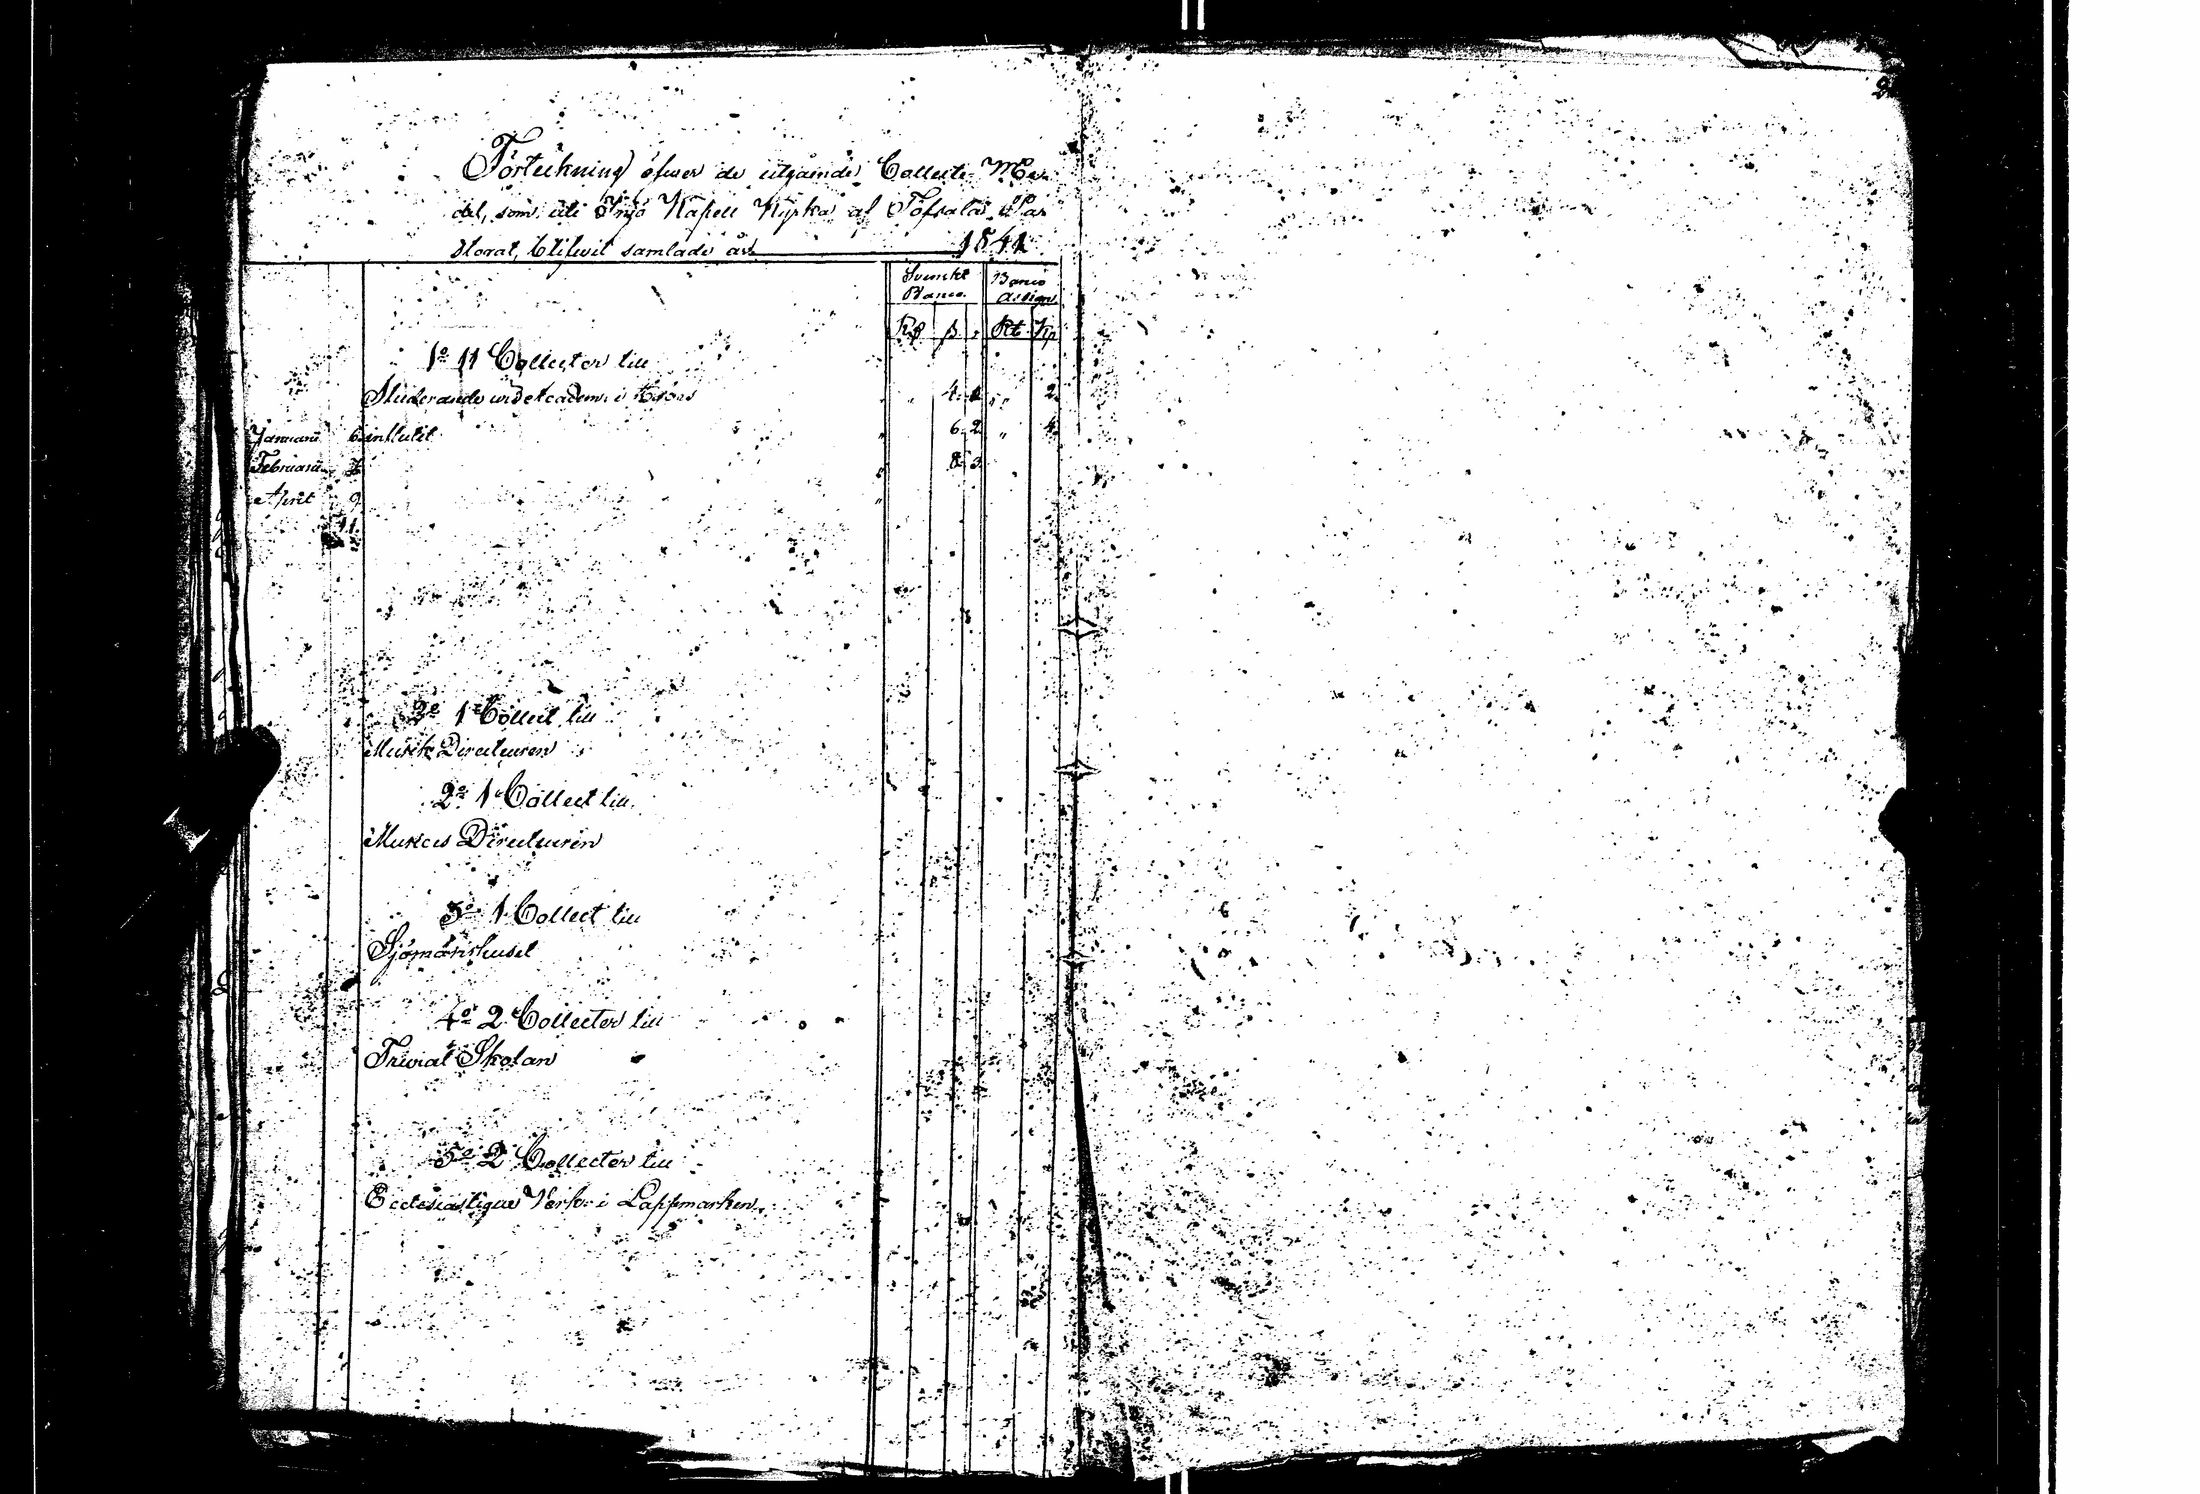 Förteckning öfwer de utgående Collect-Me-
del, som uti Kapell Kyrka af Töfsala Pas-
storat, blifwit samlade år 1841
Svenskt Banco. Banco Assign.
Rd ß. Rb. Kp
1o 11 Collecter till
Studerande wid Academ: i H:fors
" 4. " 2
Januarii 6 influtit " 6. 2. " 4
Februarii 8. 3
April 9
11.
2o 1 Collect till
Musik Directeuren
2o 1 Collect till
Musices Directeuren
3o 1 Collect till
Sjömanshuset
4o 2 Collecter till
Trivial Skolan
5o 2 Collecter till
Ecclesiastique Verk: i Lappmarken